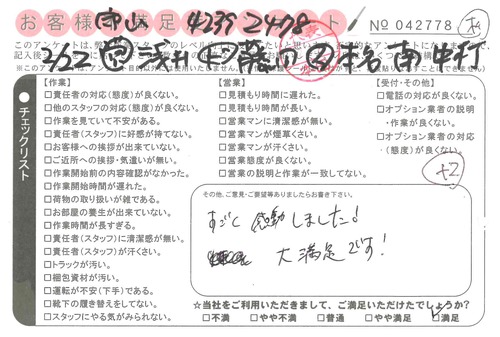 お客様 満足 ト № 042778
4239 2478
【作業】
□責任者の対応(態度)が良くない。
□他のスタッフの対応(態度)が良くない。
□作業を見ていて不安がある。
□責任者(スタッフ)に好感が持てない。
□お客様への挨拶が出来ていない。
□ご近所への挨拶・気遣いが無い。
□作業開始前の内容確認がなかった。
□作業開始時間が遅れた。
□荷物の取り扱いが雑である。
□お部屋の養生が出来ていない。
□作業時間が長すぎる。
□責任者(スタッフ)に清潔感が無い。
□責任者(スタッフ)が汗くさい。
□トラックが汚い。
□梱包資材が汚い。
□運転が不安(下手)である。
□靴下の履き替えをしてない。
□スタッフにやる気がみられない。
【営業】
□見積もり時間に遅れた。
□見積もり時間が長い。
□営業マンに清潔感が無い。
□営業マンが煙草くさい。
□営業マンが汗くさい。
□営業態度が良くない。
□営業の説明と作業が一致してない。
【受付・その他】
□電話の対応が良くない。
□オプション業者の説明
・作業が良くない。
□オプション業者の対応
・(態度)が良くない。
+2
● チェックリスト
その他、ご意見・ご要望等ありましたらお書き下さい。
すごく 感動しました!
大満足です!
☆当社をご利用いただきまして、ご満足いただけたでしょうか?
□不満 □やや不満 □普通 □やや満足 □満足